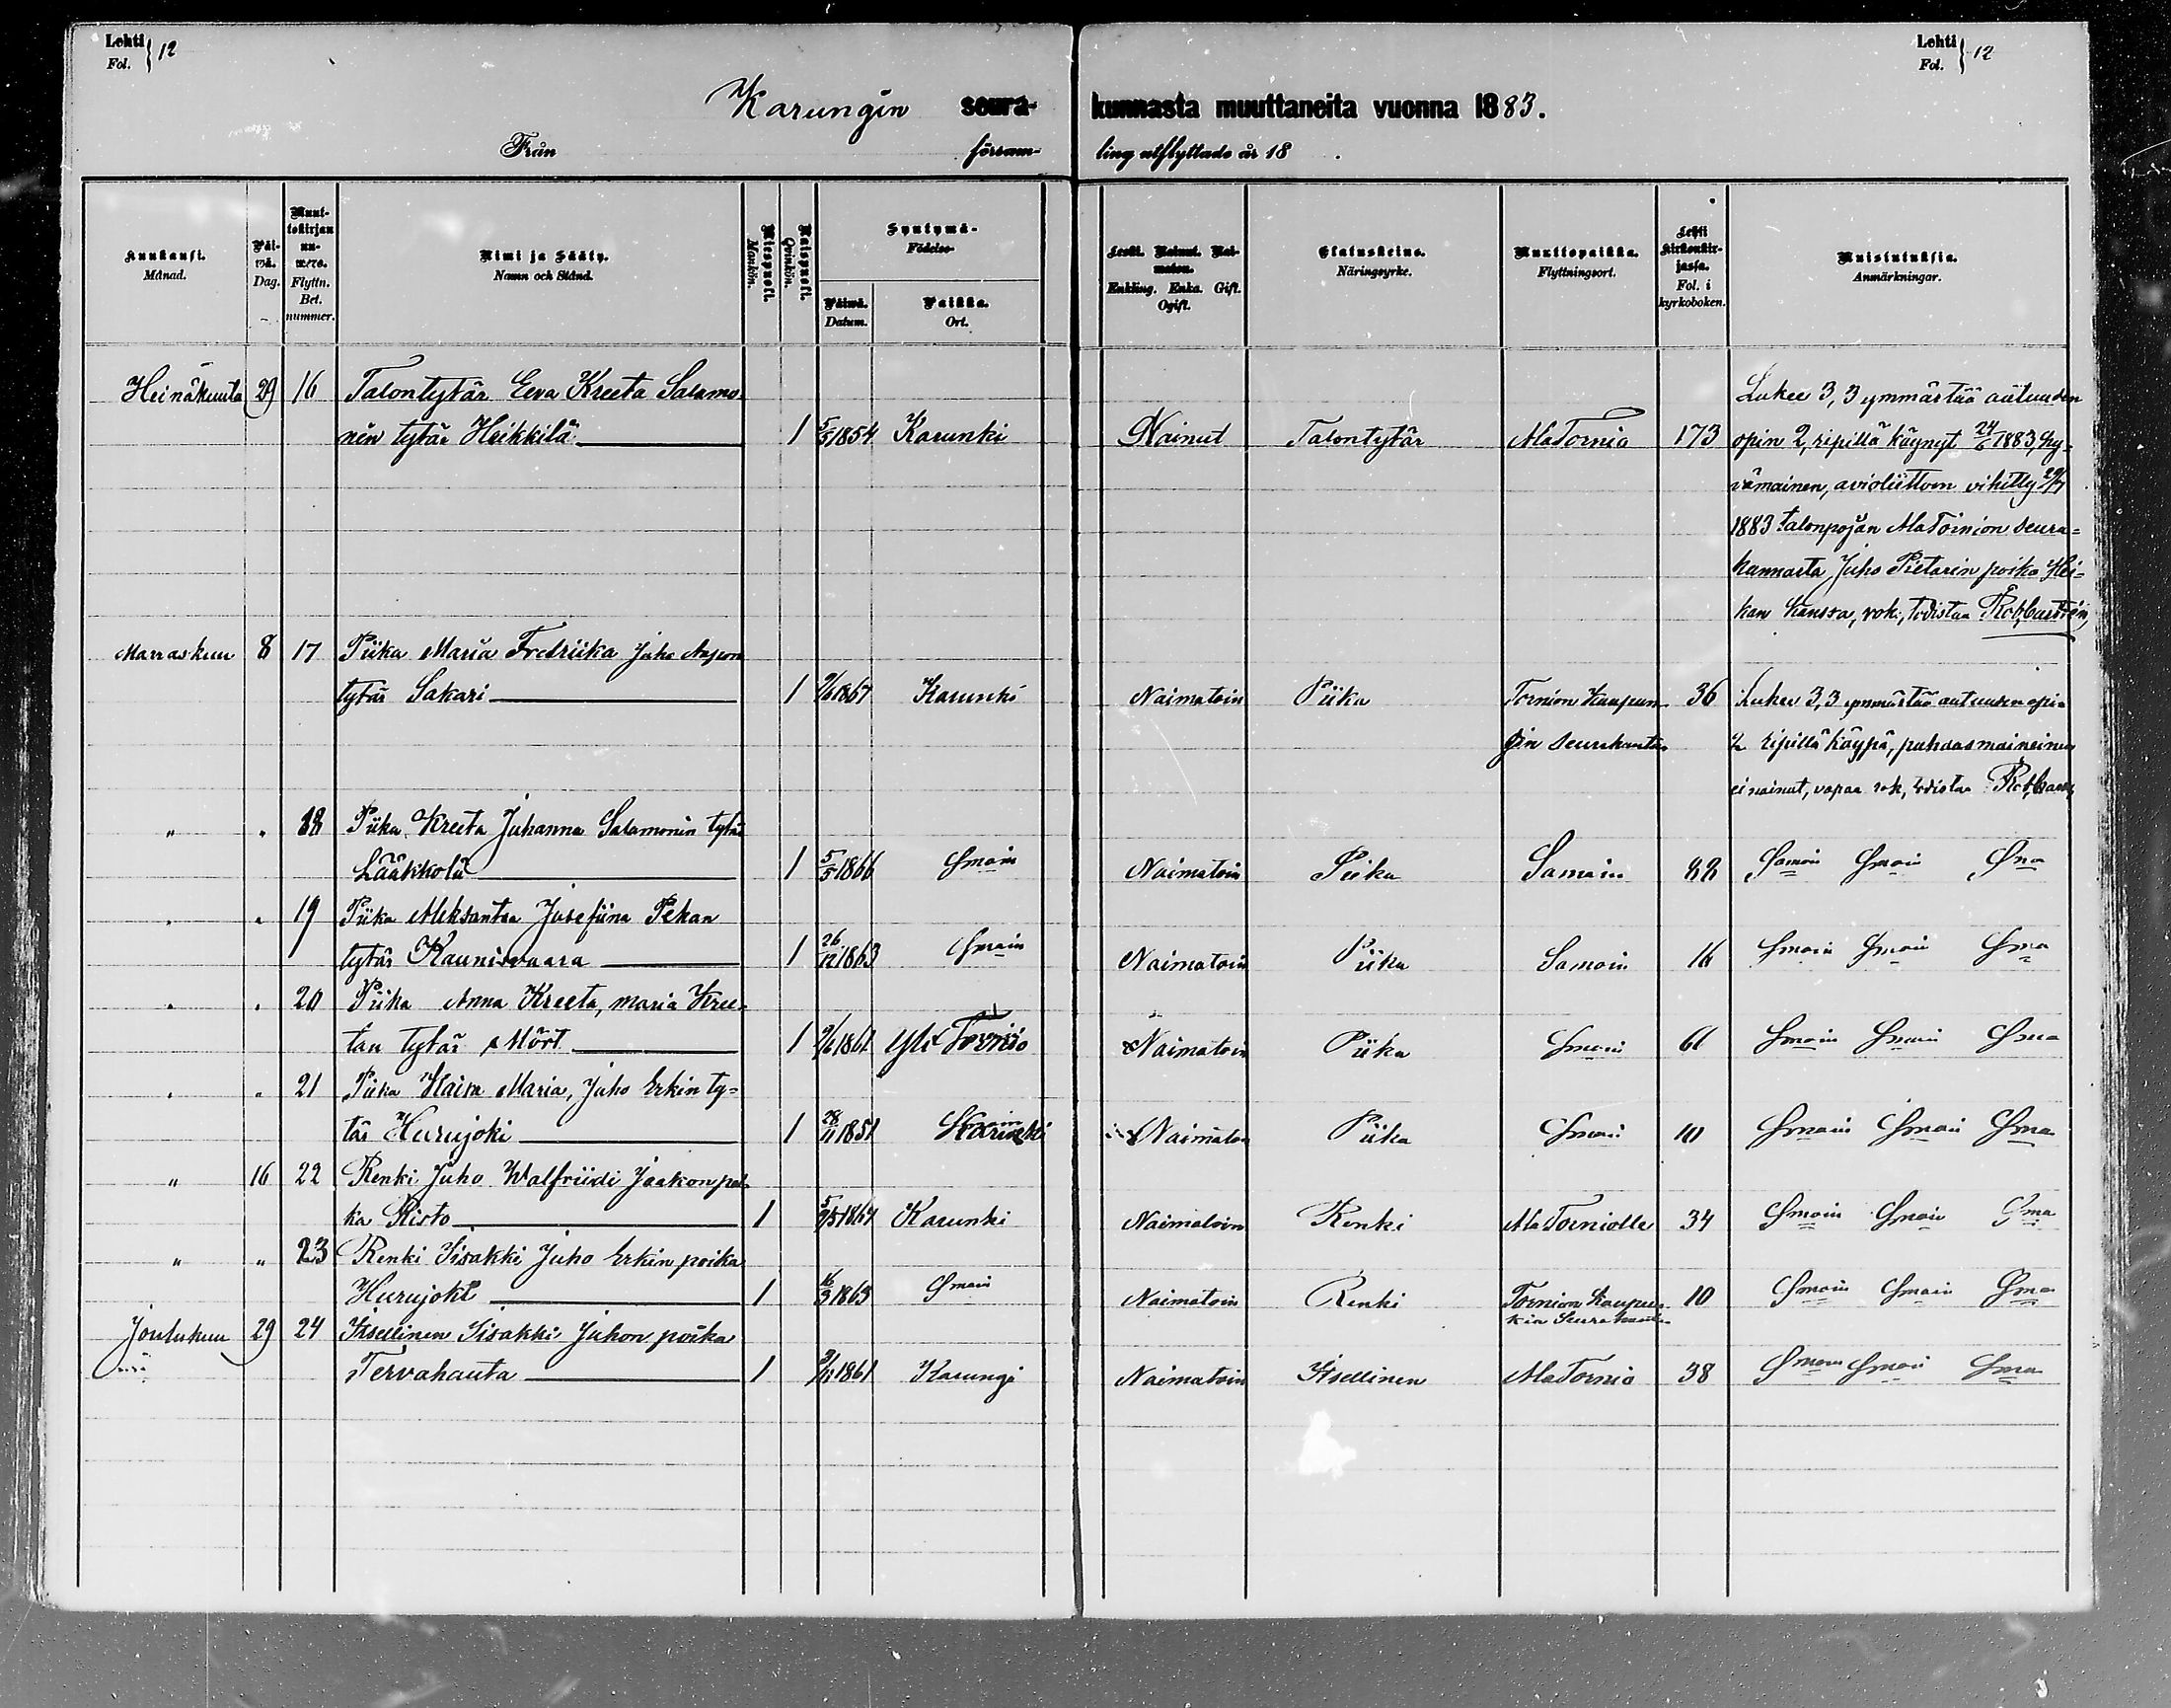 Lehti
Fol. } 12
Lehti
Fol. } 12
Karungin seura- kunnasta muuttaneita vuonna 1883.
Från försam- ling utflyttade år 18 .
Kuukausi.
Månad.
Päi-
vä.
Dag.
Muut-
tokirjan
nu-
mero.
Flyttn.
Bet.
nummer.
Nimi ja Sääty.
Namn och Stånd.
Miespuoli.
Mankön.
Vaispuoli.
Qvinkön.
Syntymä-
Födelse-
Päivä.
Datum.
Paikka.
Ort.
Leski. Nainut. Nai-
maton.
Enkling. Enka. Gift.
Ogift.
Elatuskeino.
Näringsyrke.
Muuttopaikka.
Flyttningsort.
Lehti
kirkonkir-
jassa.
Fol. i
kyrkoboken.
Muistutuksia.
Anmärkningar.
Heinäkuuta 29 16 Talontytär Eeva Kreeta Salamo- Lukee 3, 3 ymmärtää autuuden
nin tytär Heikkilä 1 5/5 1854 Karunki Nainut Talontytär AlaTornio 173 opin 2, ripillä käynyt 24/6 1883, hy-
vämainen, avioliittoon vihitty 29/7
1883 talonpojan AlaTornion seura-
kunnasta Juho Pietarin poika Hei-
kan kanssa, rok., todistaa
Marraskuu 8 17 Piika Maria Fredriika Juho Aapon
tytär Sakari 1 1867 Karunki Naimatoin Piika Tornion Kaupun- 36 Lukee 3,3 ymmärtää autuuden opin
gin seurakuntaan 2 ripillä käypä, puhdasmaineinen
ei nainut, vapaa rok, todistaa
" " 18 Piika Kreeta Johanna Salamonin tytär
Lääkkölä 1 5/5 1866 Smoin Naimatoin Piika Samoin 88 Samoin Smoin Sma
" " 19 Piika Aleksantra Josefiina Pekan
tytär Kaunisvaara 1 26/12 1863 Smoin Naimatoin Piika Samoin 16 Smoin Smoin Sma
" " 20 Piika Anna Kreeta, maria Kree-
tan tytär Mört 1 1861 Yli Tornio Naimatoin Piika Smoin 61 Smoin Smoin Sma
" " 21 Piika Kaisa Maria, Juho Erkin ty-
tär Hurujoki 1 28/11 1851 Karunki Naimatoin Piika Smoin 10 Smoin Smoin Sma
" 16 22 Renki Juho Walfriidi Jaakon poi-
ka Risto 1 1864 Karunki Naimatoin Renki AlaTorniolle 34 Smoin Smoin Sma
" " 23 Renki Iisakki Juho Erkin poika
Hurujoki 1 16/3 1863 Smoin Naimatoin Renki Tornion Kaupun- 10 Smoin Smoin Sma
kin Seurakunta
Joulukuu 29 24 Itsellinen Iisakki Juhon poika
Tervahauta 1 1861 Karungi Naimatoin Itsellinen AlaTornio 38 Smoin Smoin Sma